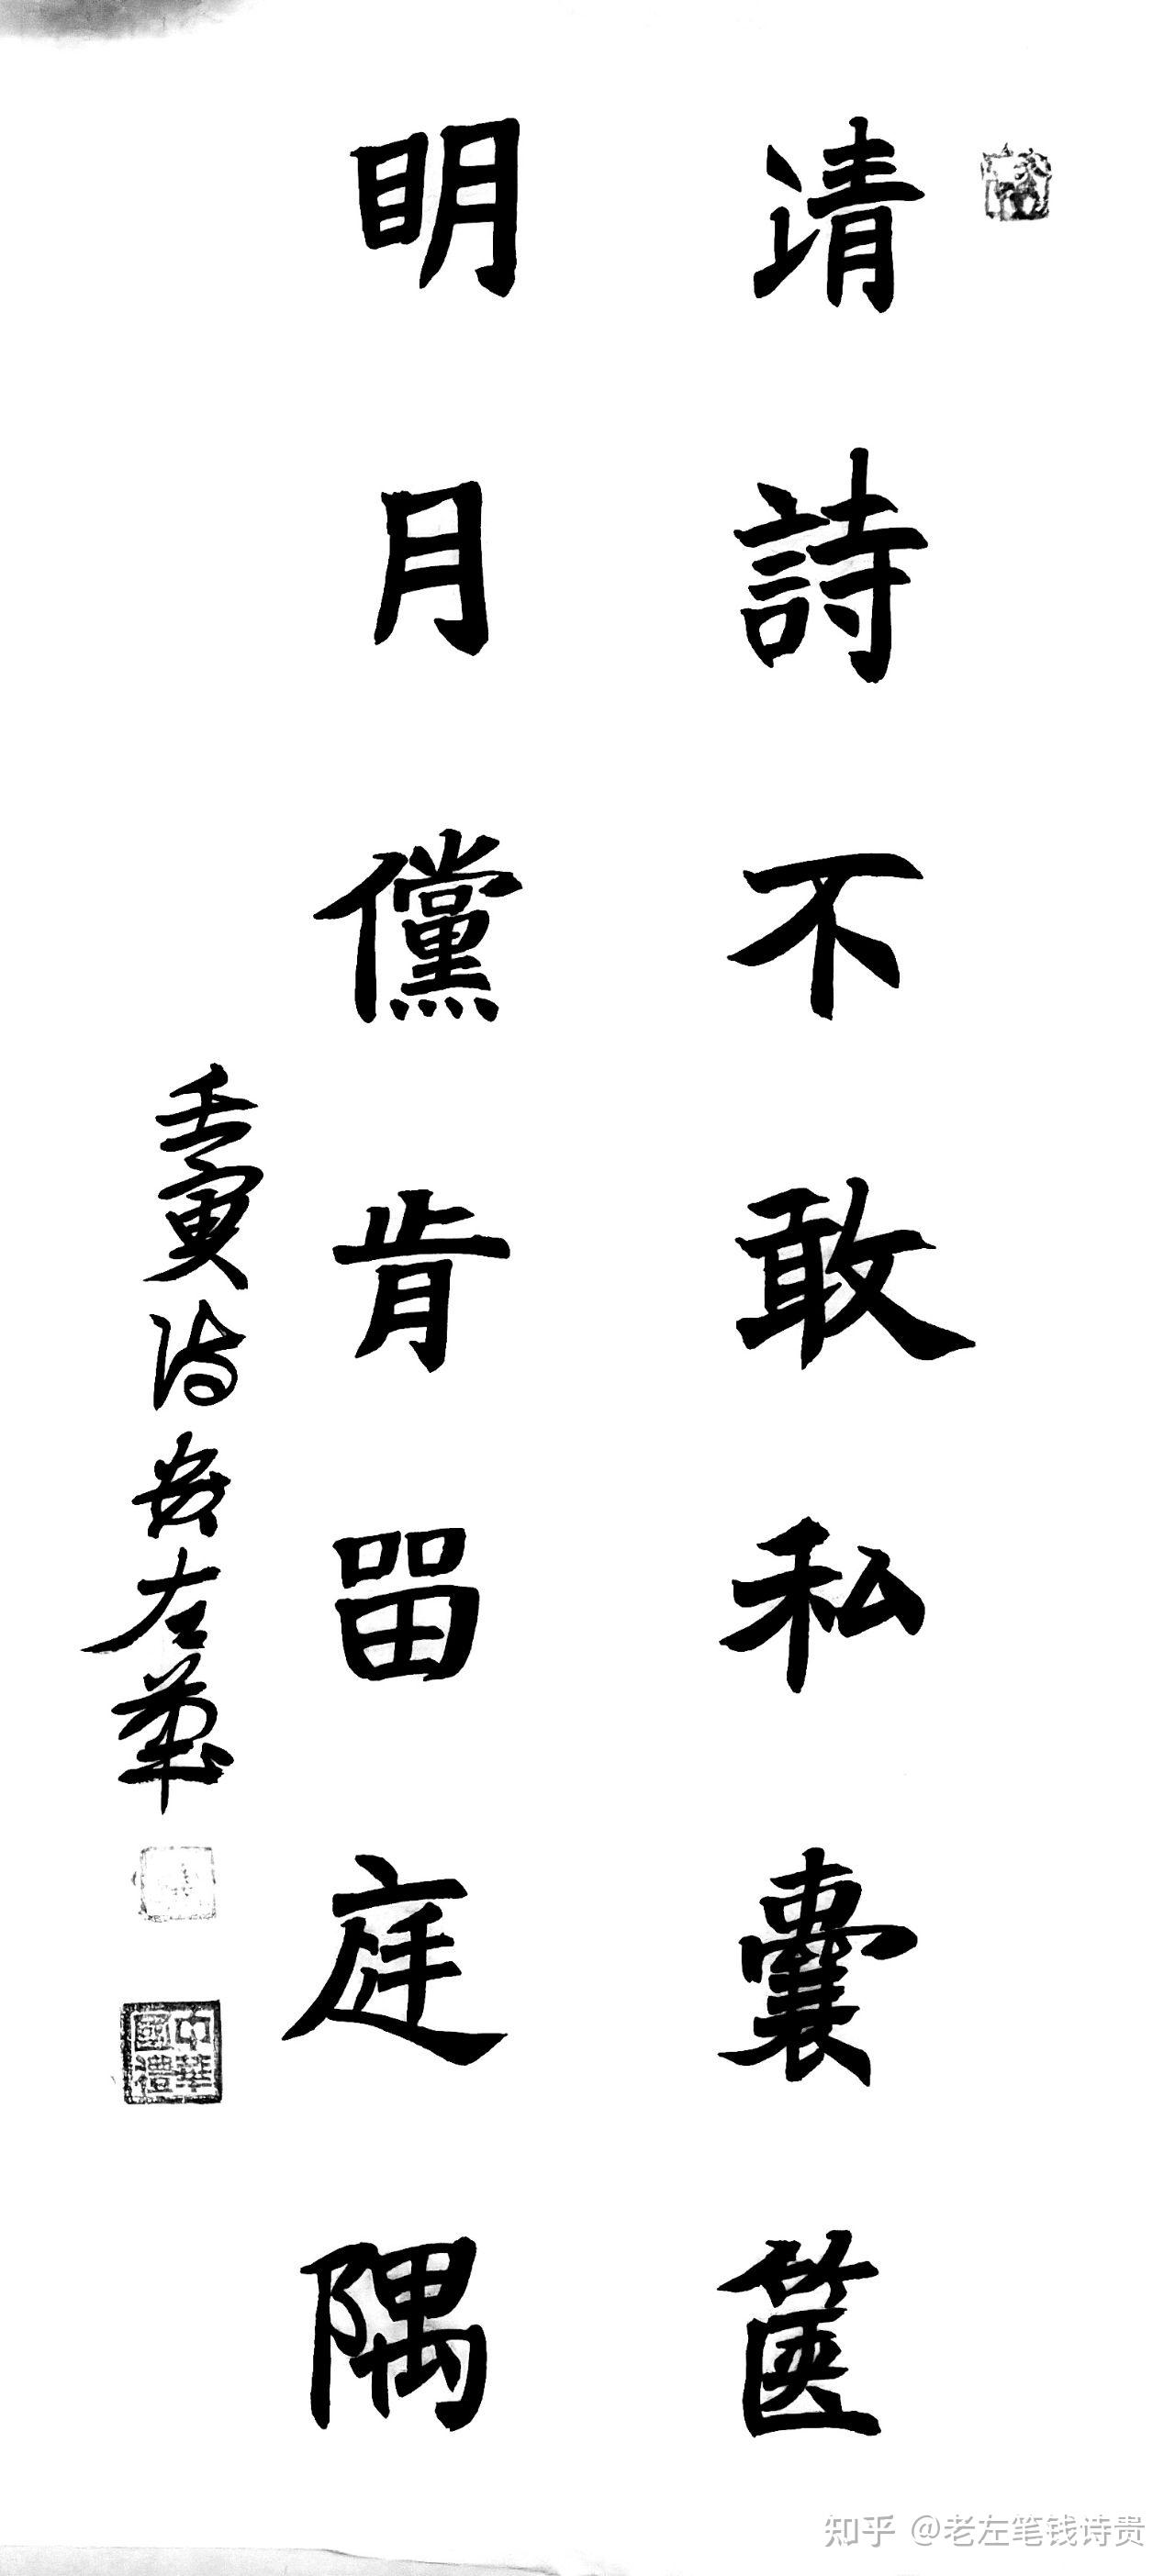 清詩不敢私囊篋
明月儻肯留庭隅
壬寅詩安左筆
中華國禮
知乎 @老左笔钱诗贵